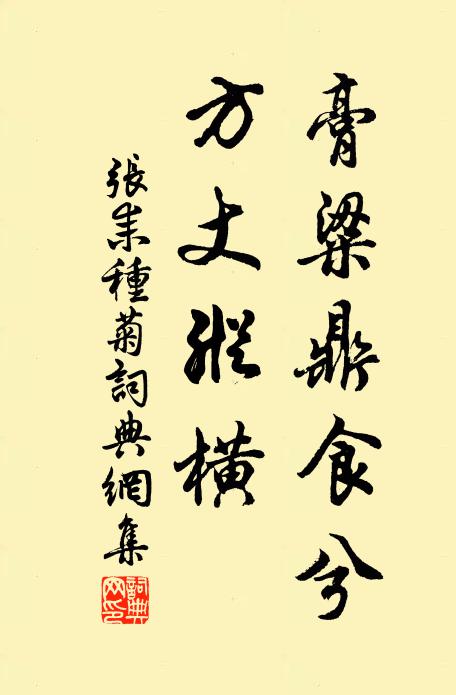 膏粱鼎食兮
方丈縱橫
張耒種菊詞典網集
詞典網印